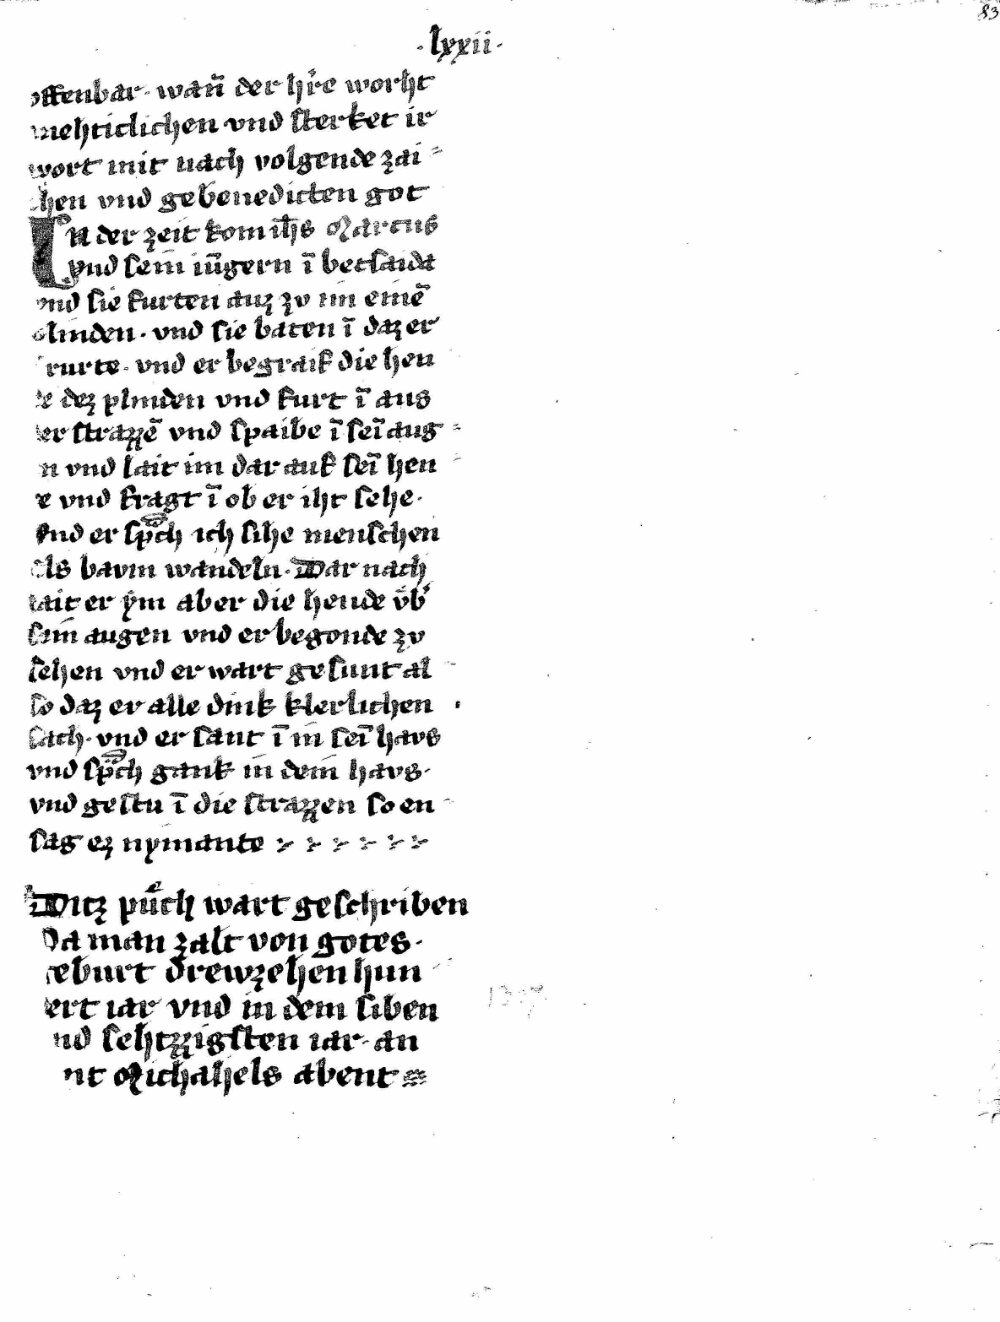 83
·lxxii·
offenbar· wañ der hr̄e worht
mehticlichen vnd sterket ir
wort mit nach volgende zai
chen vnd gebenedicten got
In der zeit kom ih̄s Marcus
vnd sein iūgern ī betsaida
vnd sie furten auz zv im einē
plinden· vnd sie baten ī daz er
rurte· vnd er begraif die hen
de dez plinden vnd furt ī aus
der strazzē vnd spaibe ī sēi aug
n vnd lait im dar auf sēi hen
e vnd fragt ī ob er iht sehe·
vnd er sprach ich sihe menschen
als bavm wandeln· Dar nach
lait er ym aber die hende v̄b̕
sein augen vnd er begonde zv
sehen vnd er wart gesunt al
so daz er alle dink klerlichen
sach· vnd er sant ī in sēi havs
vnd sprach gank in dein havs·
vnd gestu ī die strazzen so en
sag ez nymante
Ditz pūch wart geschriben
Da man zalt von gotes·
geburt drewzehen hun
dert iar vnd in dem siben
vnd sehtzzigsten iar· an
nt Michahels abent